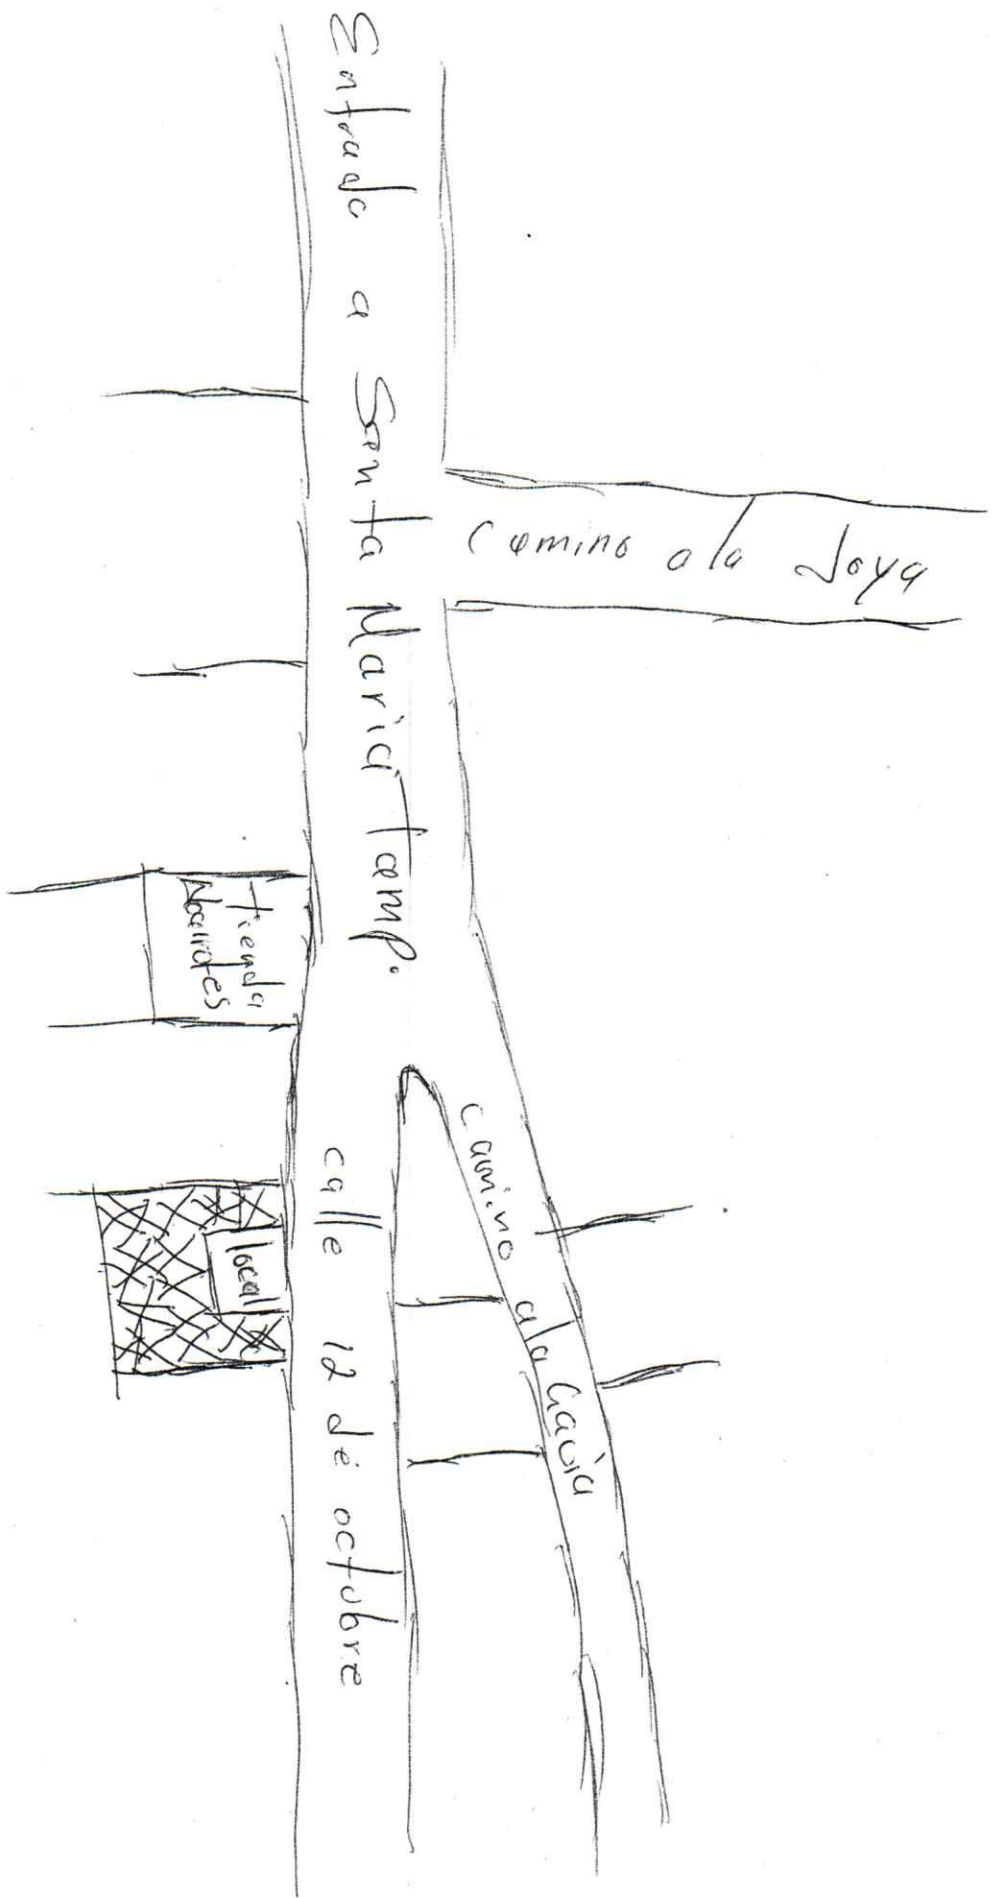 Entrada a Santa Maria Tamp.
Camino a la Joya
Tienda
camino a la Gavia
calle 12 de octubre
local